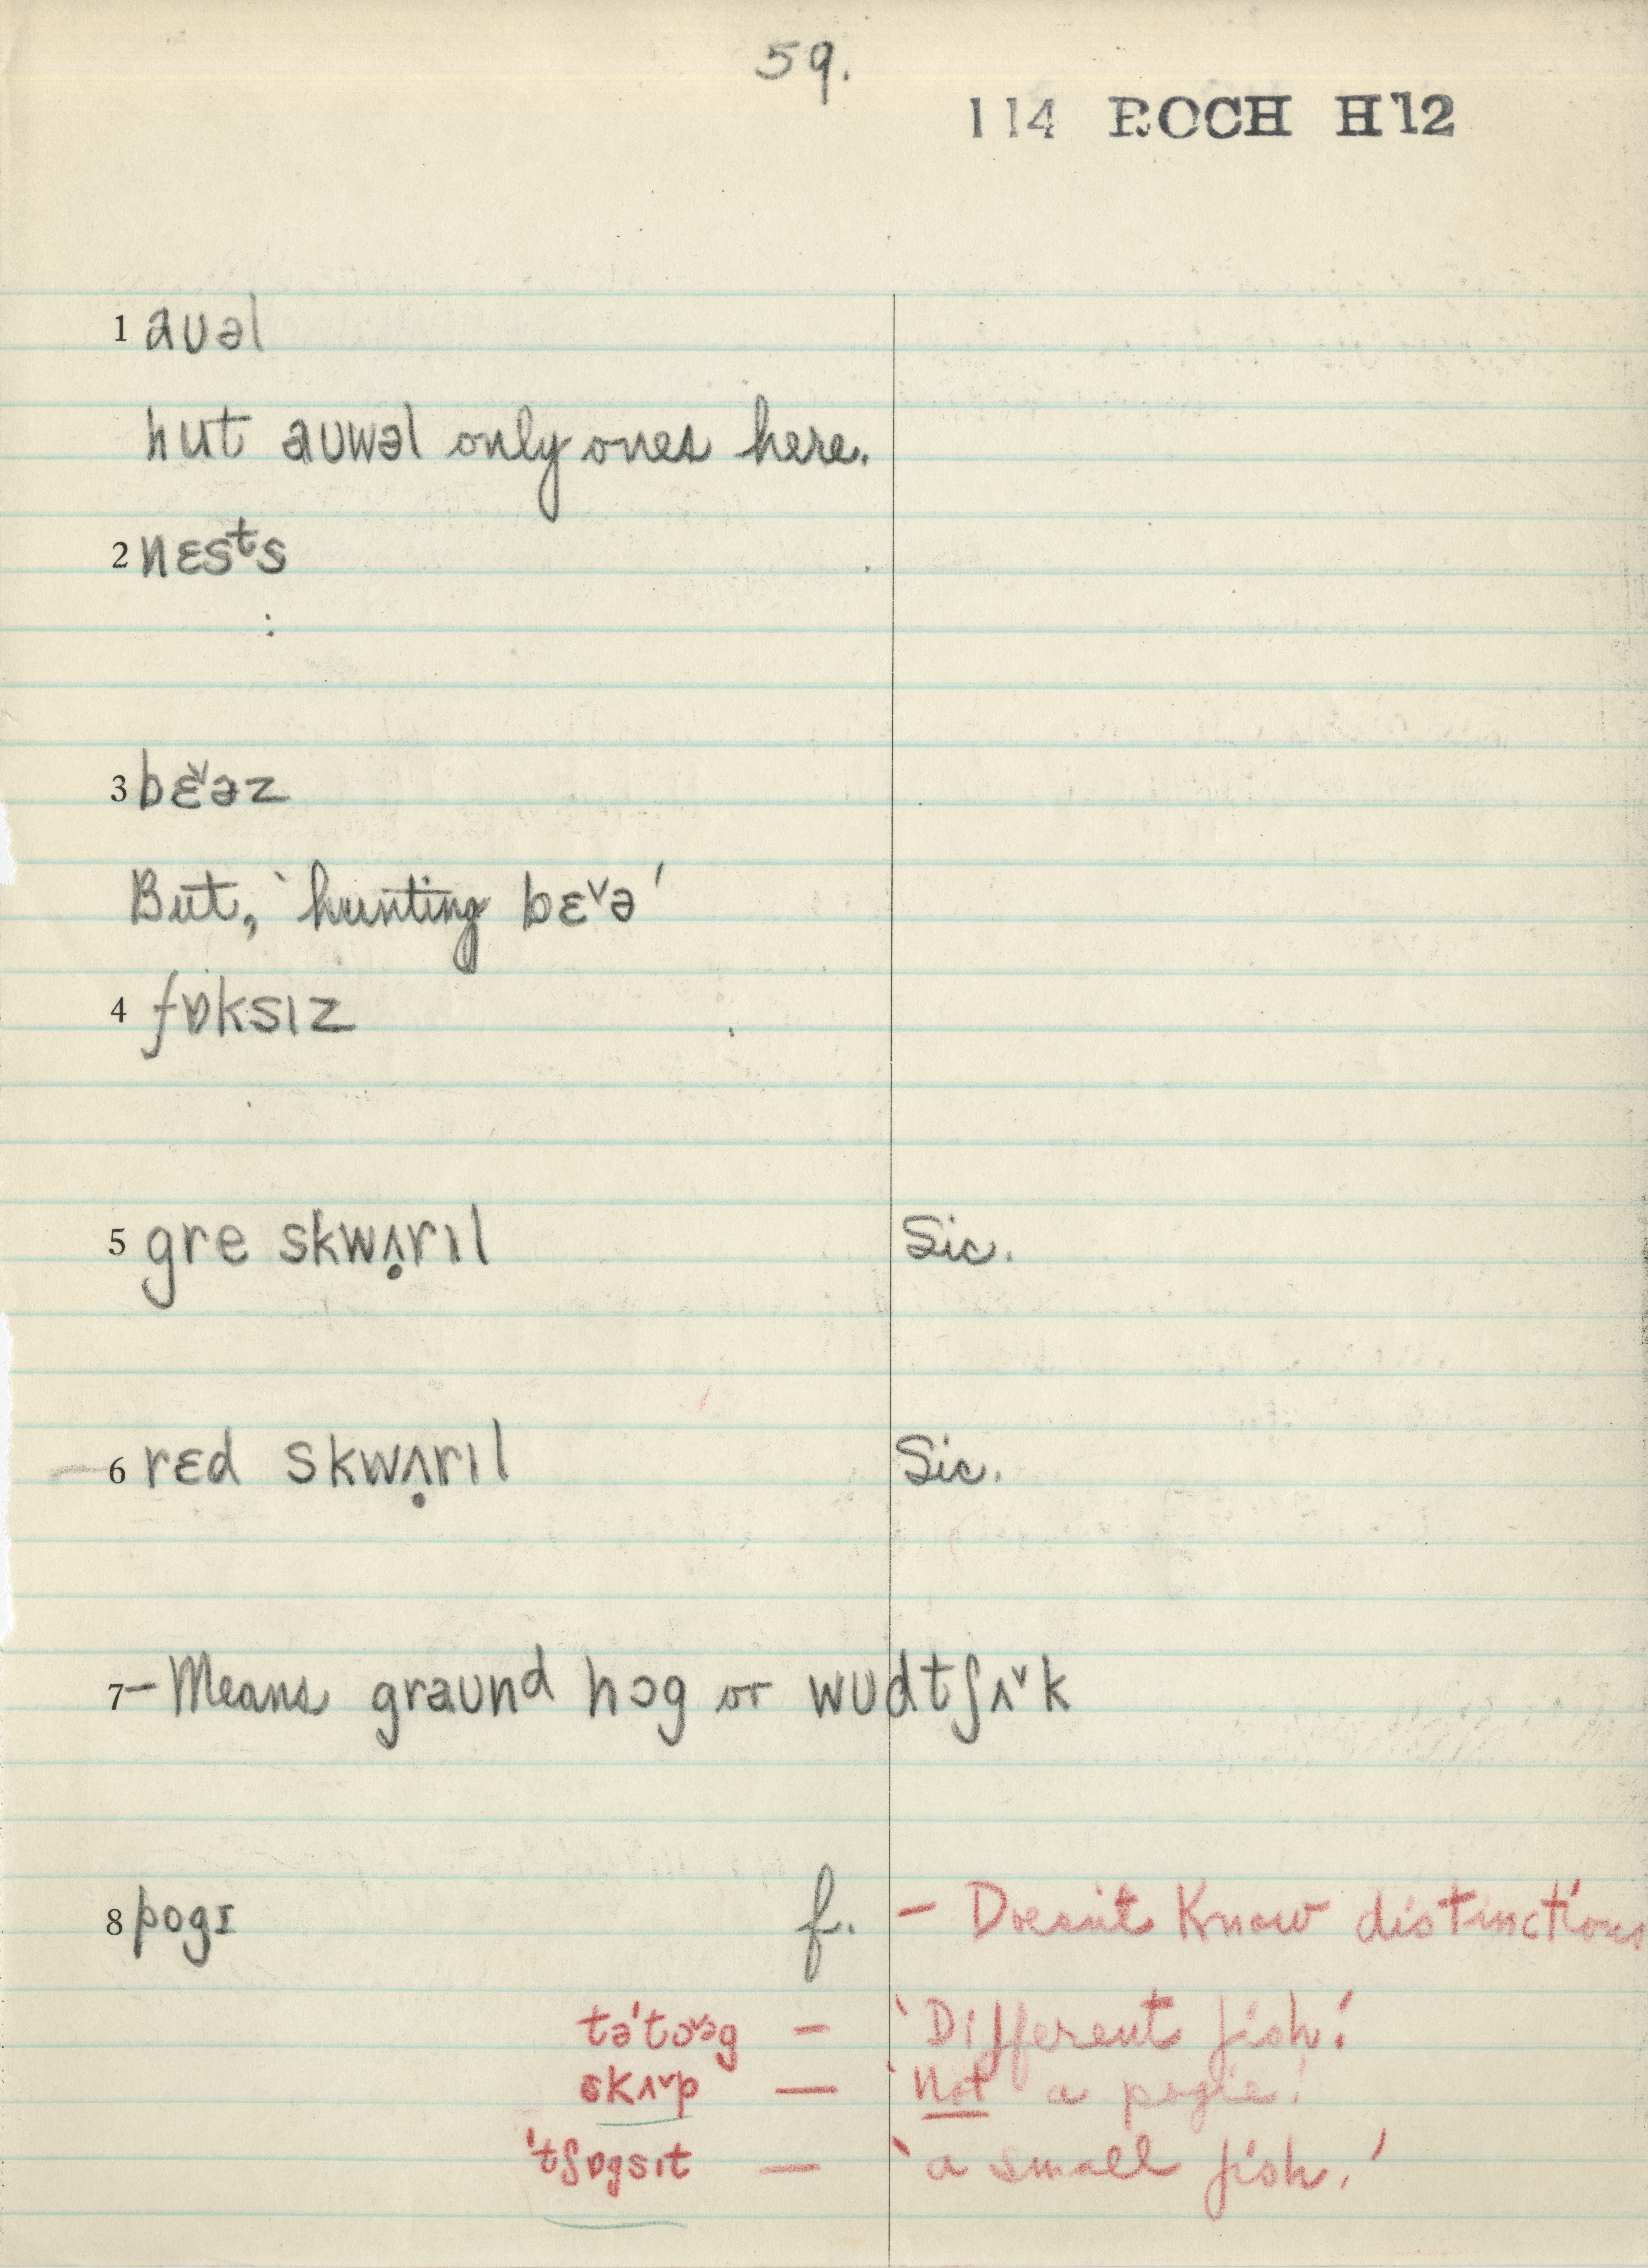 59.
114 ROCH H12
1 aʊəl
hut aʊwəl only ones here.
2 nɛsᵗs
3 bɛ˅əz
But, ‵hunting bɛ˅ə′
4 fɒksɪz
5 gre skwʌ̣rɪl Sic.
6 rɛd skwʌ̣rɪl Sic.
7 – Means graʊnd hɔg or wʊdtʃʌ˅k
8 pogɪ f. – Doesn't Know distinctions
tə'tɔ˅əg – ‵Different fish.′
skʌ˅p – ‵Not a pogie.′
'tʃɒgsɪt – ‵a small fish.′